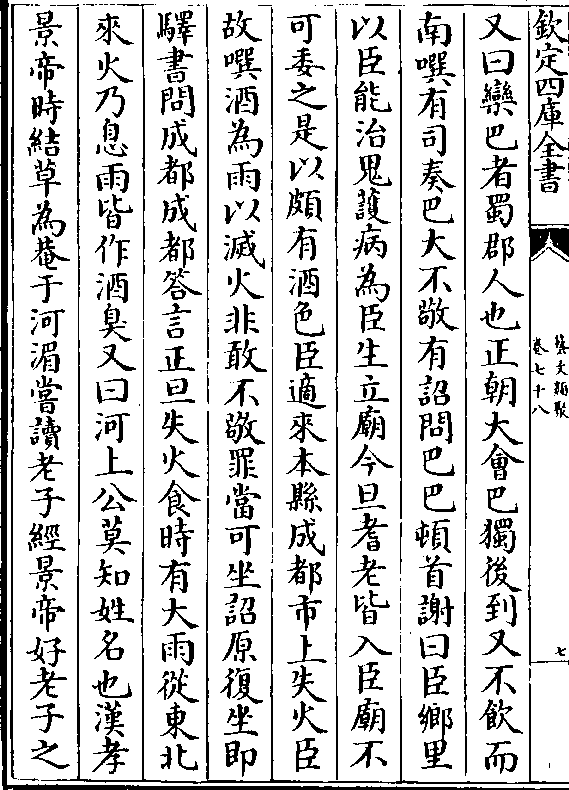 欽定四庫全書
藝文類聚
卷七十八
七
又曰欒巴者蜀郡人也正朝大會巴獨後到又不飲而
南噀有司奏巴大不敬有詔問巴巴頓首謝曰臣鄉里
以臣能治鬼護病為臣生立廟今旦耆老皆入臣廟不
可委之是以頗有酒色臣適來本縣成都市上失火臣
故噀酒為雨以滅火非敢不敬罪當可坐詔原復坐即
驛書問成都成都答言正旦失火食時有大雨從東北
來火乃息雨皆作酒臭又曰河上公莫知姓名也漢孝
景帝時結草為菴于河湄嘗讀老子經景帝好老子之